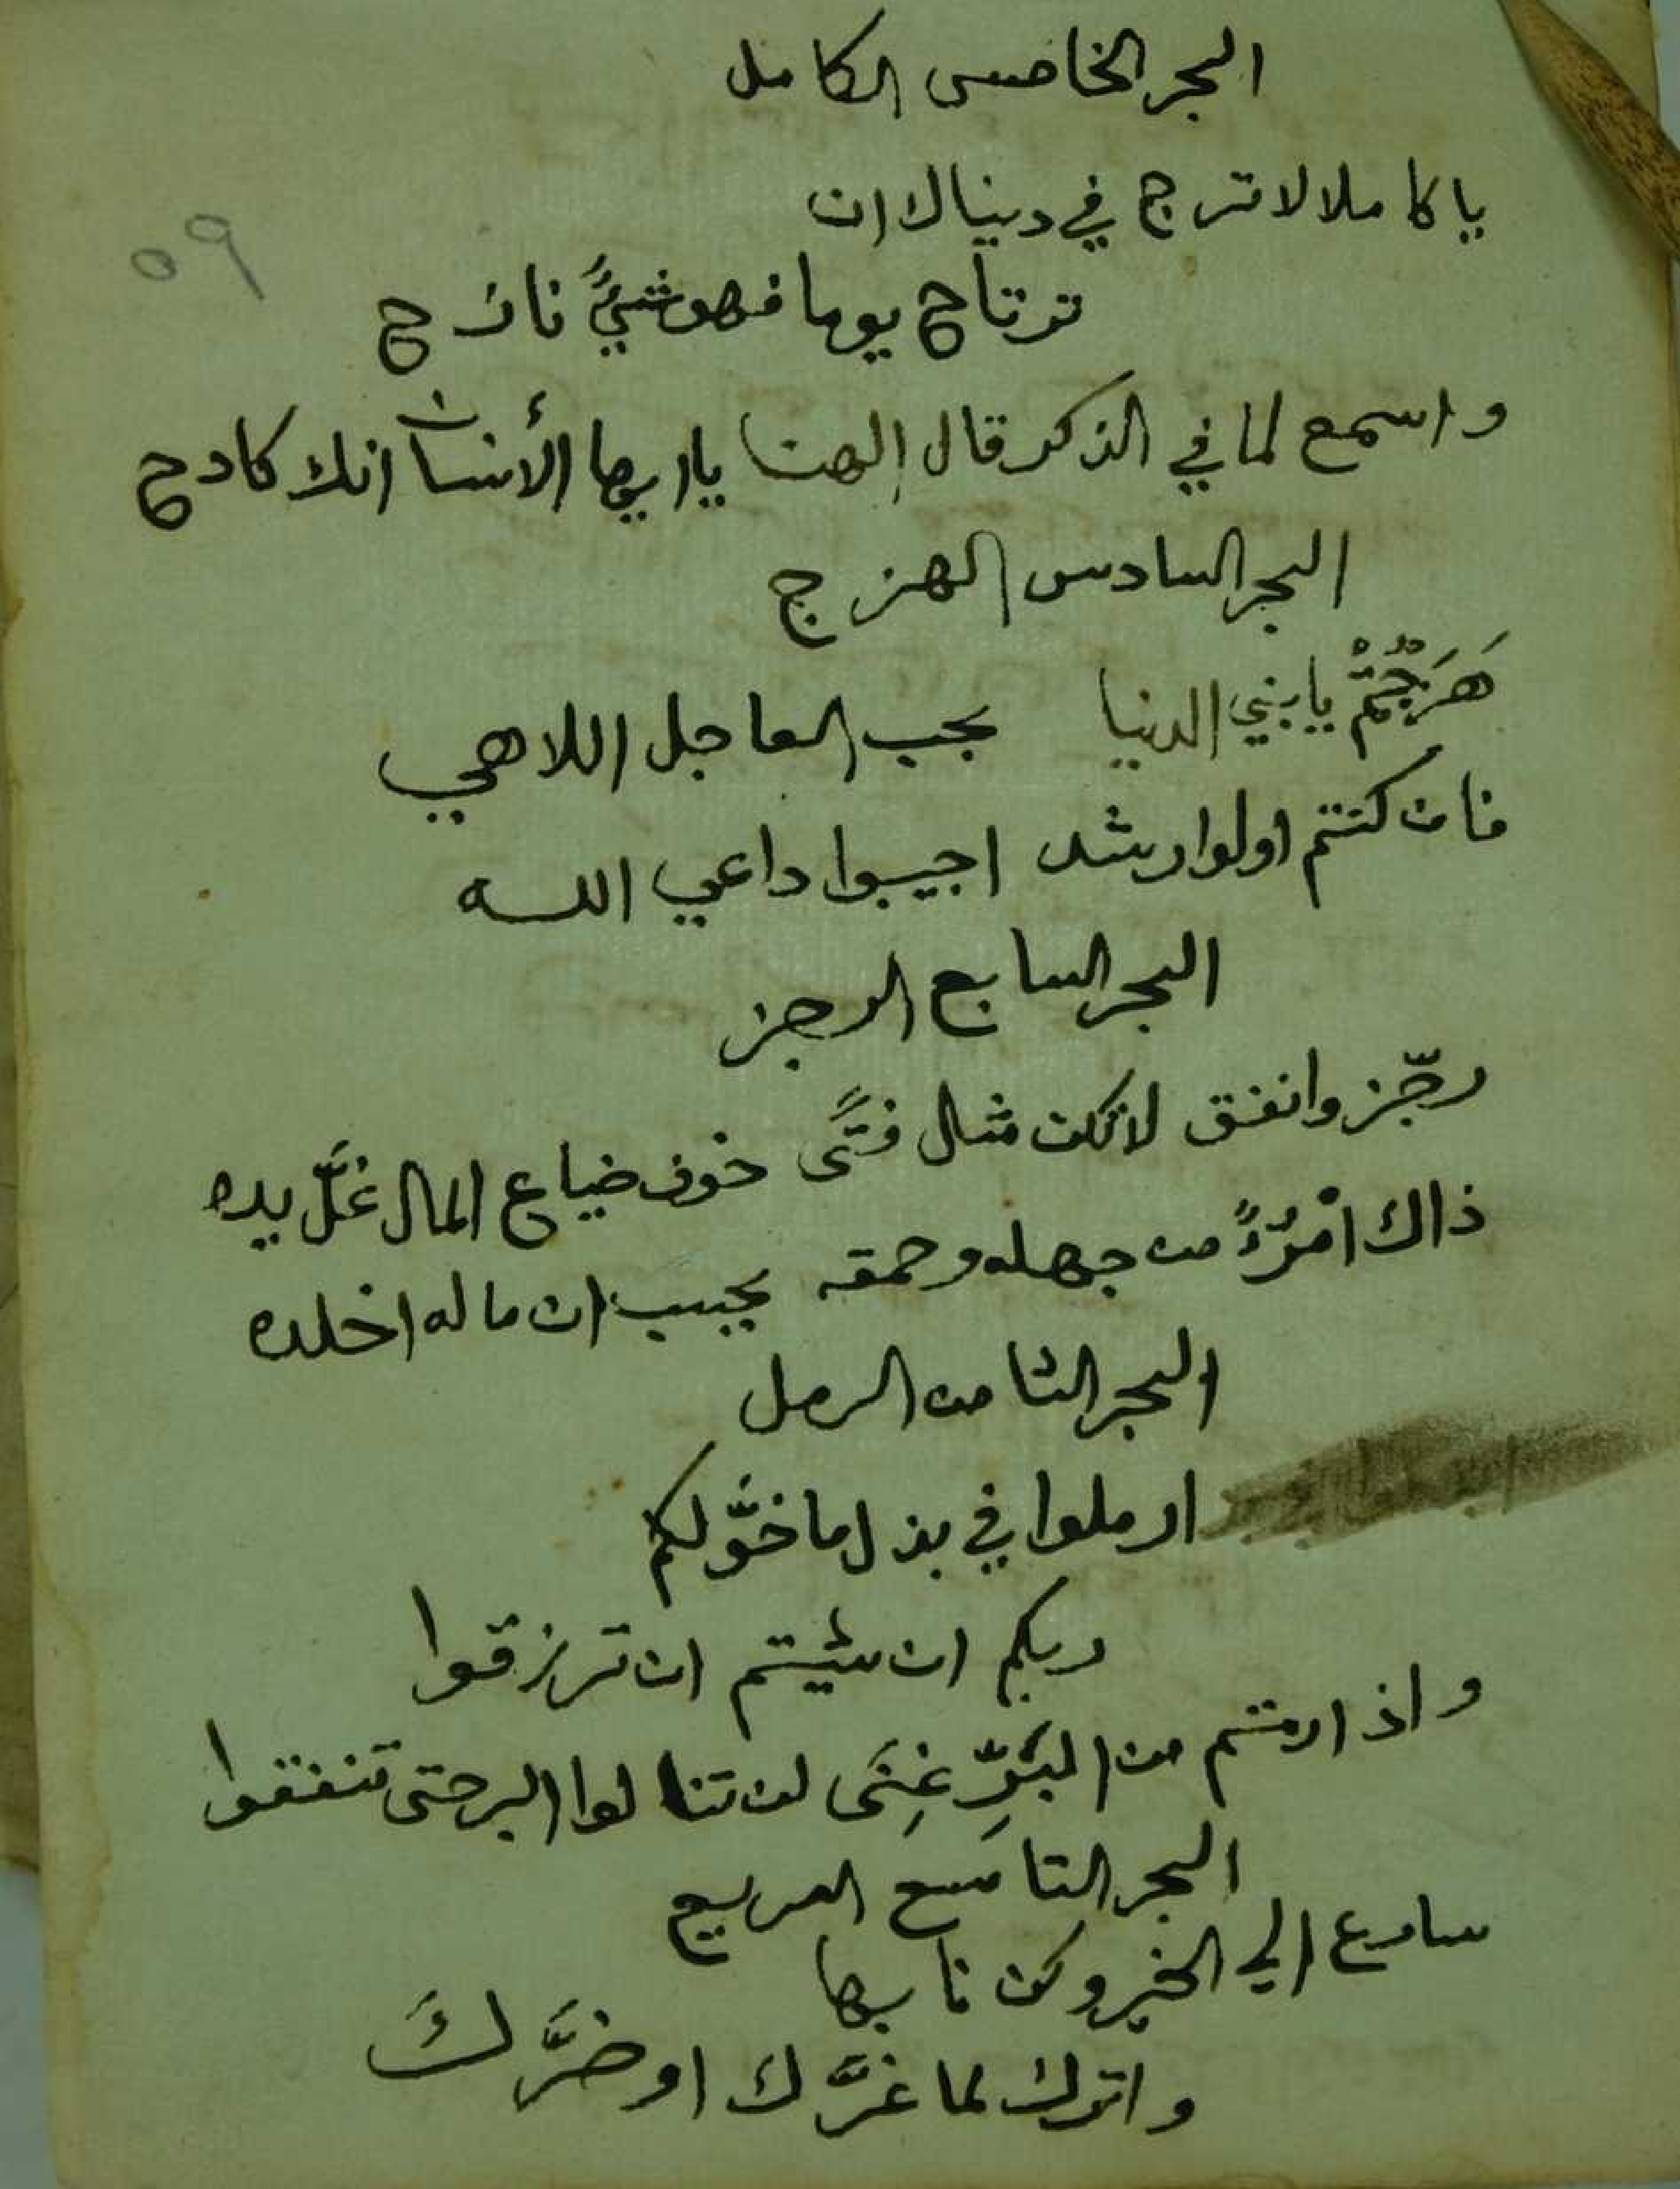 البحر الخامس الكامل
يا كاملا لا ترج في دينياك ان
٥٩
ترتاح يوما فهو شيءً نازح
واسمع لما في الذكر قال إلهنا يا ايها الأنسان انك كادح
البحر السادس الهزج
هَزَجْتُمْ يا بني الدنيا بحب العاجل اللاهي
فان كنتم اولوا رشد اجيبوا داعي الله
البحر السابع الرجز
رجّز وانفق لا تكن مثال فتًّى خوف ضياع المال غلَّ يده
ذاك امْرُءً من جهله وحمقه يحسب ان ماله اخلده
البحر الثامن الرمل
ارملوا في بذل ما خوَّلكم
ربكم ان شيئتم ان ترزقوا
واذا رمتم من البَرِّ غِنَى لن تنالوا البر حتى تنفقوا
البحر التاسع السريع
سارع الي الخير وكن نابها
واترك لما غرَّك او ضرَّ لكَ